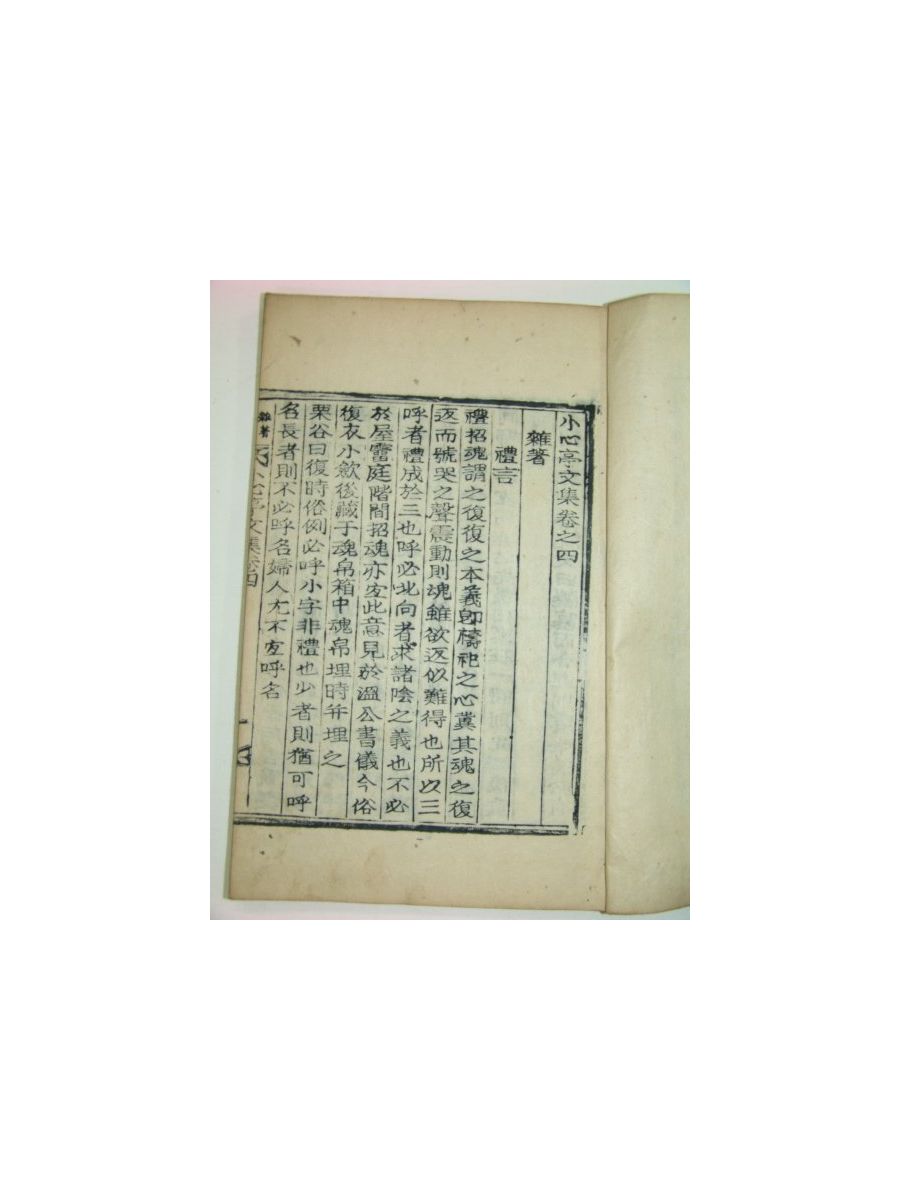 小心亭文集卷之四
雜著
禮言
禮招魂謂之復復之本義卽禱祀之心冀其魂之復
返而號哭之聲震動則魂雖欲返似難得也所以三
呼者禮成於三也呼必北向者求諸陰之義也不必
於屋霤庭階間招魂亦宜此意見於溫公書儀今俗
復衣小斂後藏于魂帛箱中魂帛埋時并埋之
栗谷曰復時俗例必呼小字非禮也少者則猶可呼
名長者則不必呼名婦人尤不宜呼名
雜著
小心亭文集卷四
一